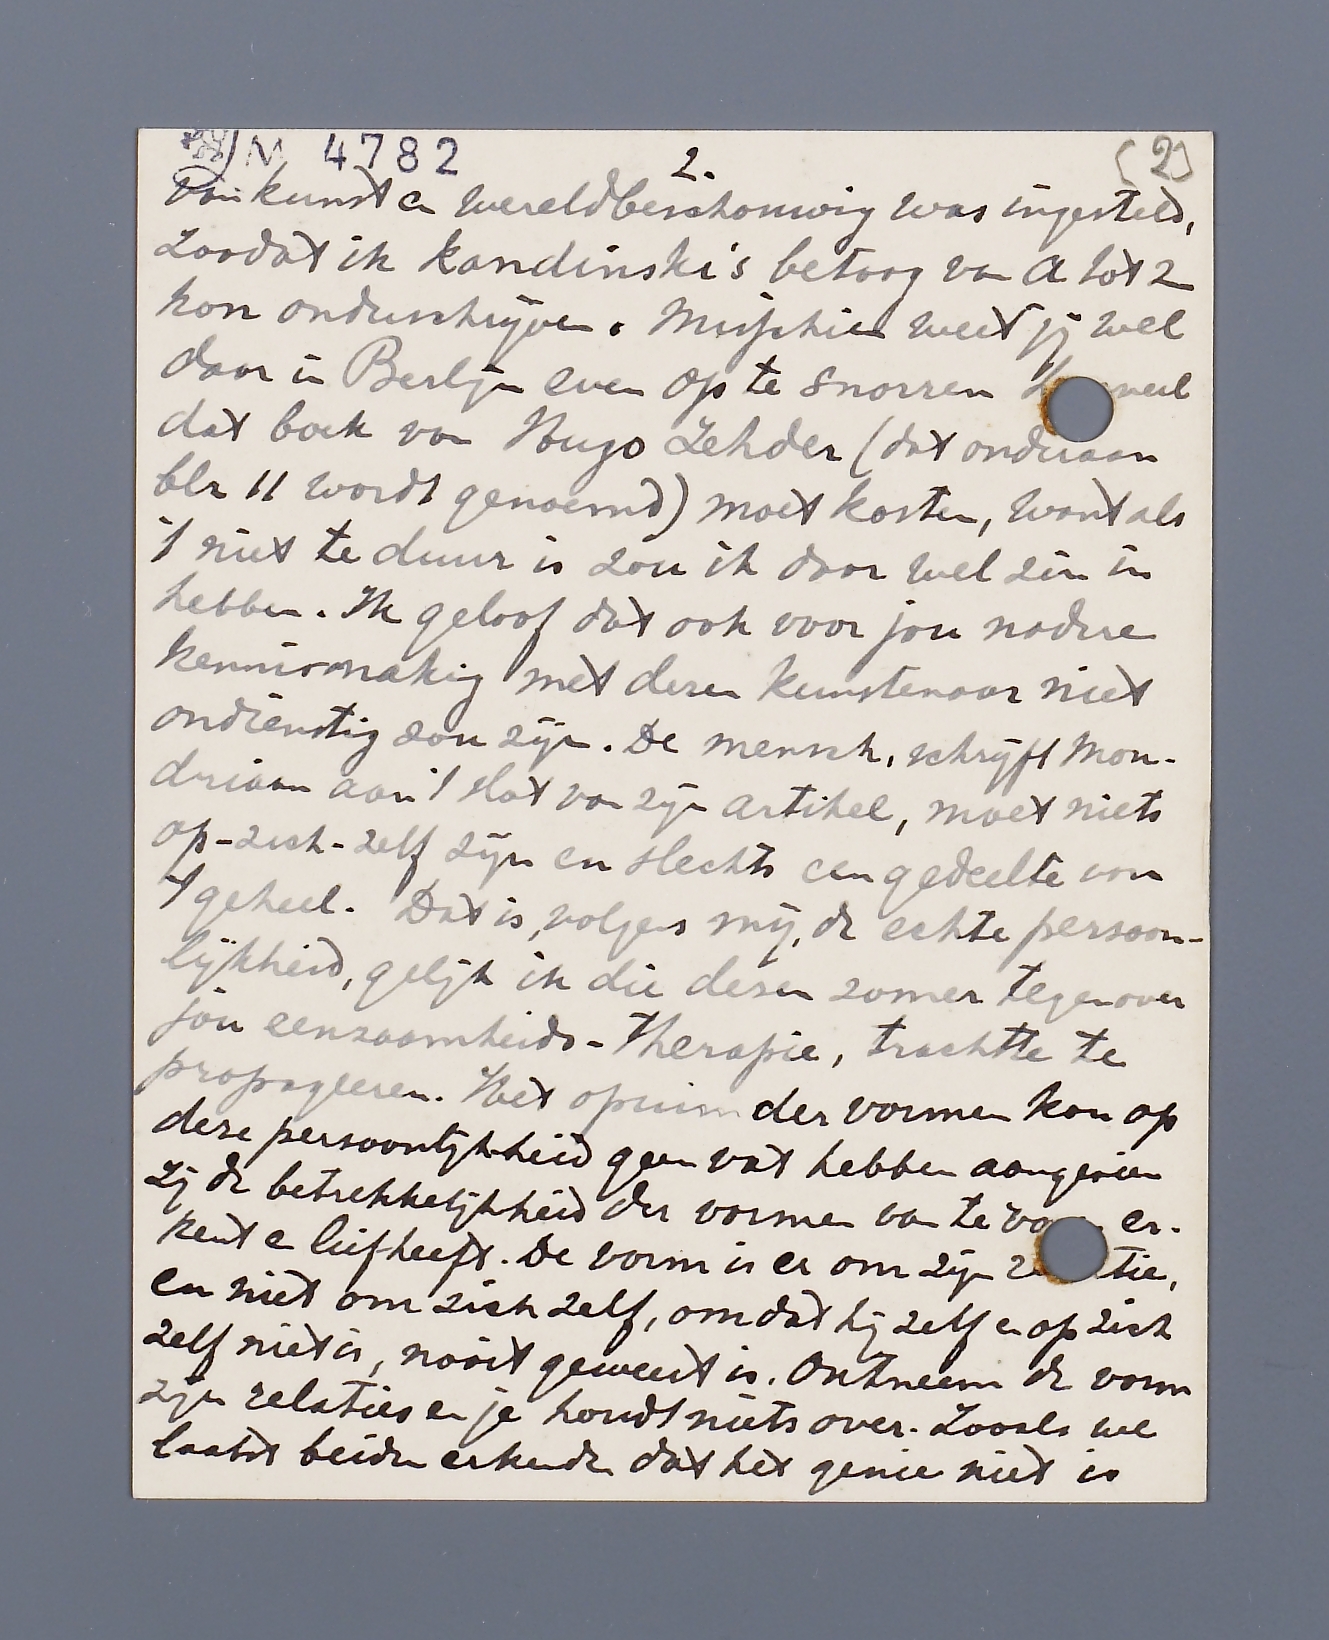 M 4782 2. (2)
van kunst en wereldbeschouwing was ingesteld,
zoodat ik kandinski's betoog van A tot Z
kon onderschrijven. Misschien weet jij wel
daar in Berlijn even op te snorren
dat boek van Hugo Zehder (dat onderaan
blz 11 wordt genoemd) moet kosten, want als
't niet te duur is zou ik daar wel zin in
hebben. Ik geloof dat ook voor jou nadere
kennismaking met dezen kunstenaar niet
ondienstig zou zijn. De mensch, schrijft Mon-
driaan aan 't slot van zijn artikel, moet niets
op-zich-zelf zijn en slechts een gedeelte van
't geheel. Dat is, volgens mij, de echte persoon-
lijkheid, gelijk ik die dezen zomer tegenover
jou eenzaamheids-therapie, trachtte te
propageeren. Het opium der vormen kan op
deze persoonlijkheid geen vat hebben aangezien
zij de betrekkelijkheid der vormen van te er-
kent en liefheeft. De vorm is er om zijn
en niet om zich zelf, omdat hij zelf en op zich
zelf niet is, nooit geweest is. Ontneem de vorm
zijn relaties en je houdt niets over. Zooals we
laatst beiden erkenden dat het genie niet is